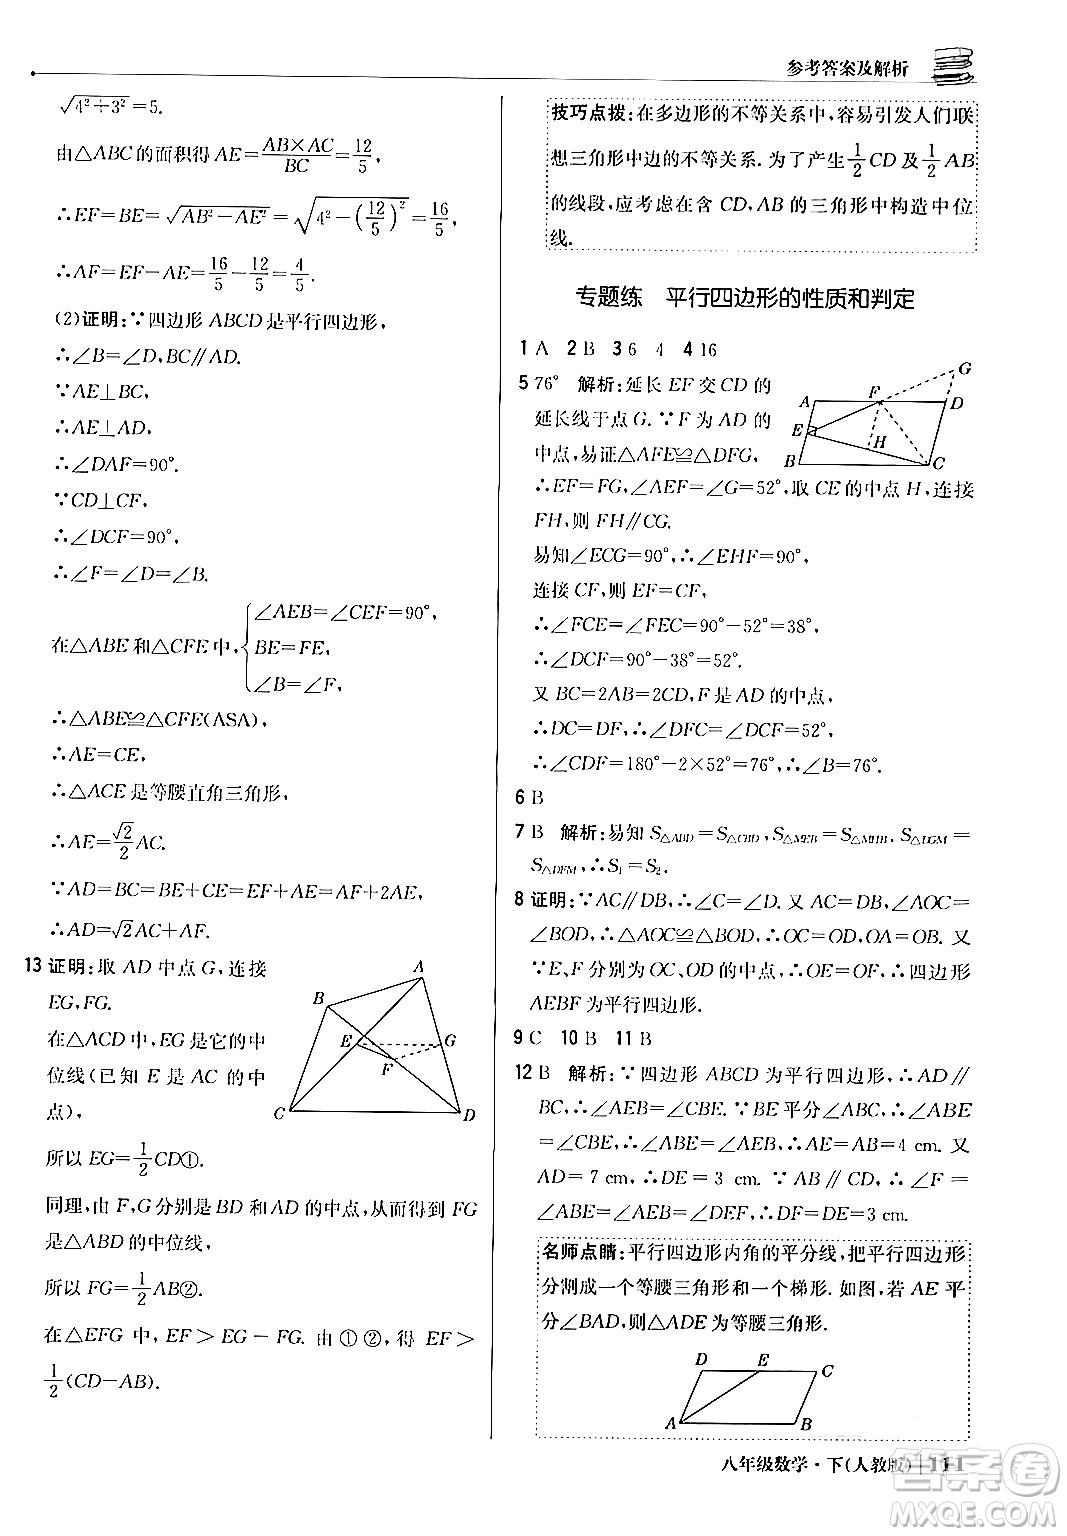 参考答案及解析
√(4²+3²)=5.
由△ABC的面积得AE=AB×AC/BC=12/5,
∴EF=BE=√(AB²-AE²)=√(4²-(12/5)²)=16/5,
∴AF=EF-AE=16/5-12/5=4/5.
(2)证明:∵四边形ABCD是平行四边形,
∴∠B=∠D,BC∥AD.
∵AE⊥BC,
∴AE⊥AD,
∴∠DAF=90°.
∵CD⊥CF,
∴∠DCF=90°,
∴∠F=∠D=∠B.
在△ABE和△CFE中,{∠AEB=∠CEF=90°,
BE=FE,
∠B=∠F,
∴△ABE≌△CFE(ASA),
∴AE=CE,
∴△ACE是等腰直角三角形,
∴AE=√2/2 AC.
∵AD=BC=BE+CE=EF+AE=AF+2AE,
∴AD=√2AC+AF.
13 证明:取AD中点G,连接
EG,FG.
在△ACD中,EG是它的中
位线(已知E是AC的中
点),
所以EG=1/2CD①.
同理,由F,G分别是BD和AD的中点,从而得到FG
是△ABD的中位线,
所以FG=1/2AB②.
在△EFG中,EF>EG-FG.由①②,得EF>
1/2(CD-AB).
A
B
E
G
F
C
D
技巧点拨:在多边形的不等关系中,容易引发人们联
想三角形中边的不等关系.为了产生1/2CD及1/2AB
的线段,应考虑在含CD,AB的三角形中构造中位
线.
专题练 平行四边形的性质和判定
1 A 2 B 3 6 4 4 16
5 76° 解析:延长EF交CD的
延长线于点G.∵F为AD的
中点,易证△AFE≌△DFG,
∴EF=FG,∠AFE=∠G=52°,取CE的中点H,连接
FH,则FH∥CG.
易知∠ECG=90°,∴∠EHF=90°,
连接CF,则EF=CF,
∴∠FCE=∠FEC=90°-52°=38°,
∴∠DCF=90°-38°=52°.
又BC=2AB=2CD,F是AD的中点,
∴DC=DF,∴∠DFC=∠DCF=52°,
∴∠CDF=180°-2×52°=76°,∴∠B=76°.
G
A
F
D
E
H
B
C
6 B
7 B 解析:易知S△ABD=S△CBD,S△MEB=S△MHB,S△DGM=
S△DFM,∴S₁=S₂.
8 证明:∵AC∥DB,∴∠C=∠D.又AC=DB,∠AOC=
∠BOD,∴△AOC≌△BOD,∴OC=OD,OA=OB.又
∵E,F分别为OC,OD的中点,∴OE=OF,∴四边形
AEBF为平行四边形.
9 C 10 B 11 B
12 B 解析:∵四边形ABCD为平行四边形,∴AD∥
BC,∴∠AEB=∠CBE.∵BE平分∠ABC,∴∠ABE
=∠CBE,∴∠ABE=∠AEB,∴AE=AB=4 cm.又
AD=7 cm,∴DE=3 cm.∵AB∥CD,∴∠F=
∠ABE=∠AEB=∠DEF,∴DF=DE=3 cm.
名师点睛:平行四边形内角的平分线,把平行四边形
分割成一个等腰三角形和一个梯形.如图,若AE平
分∠BAD,则△ADE为等腰三角形.
D
E
C
A
B
八年级数学·下(人教版) 111
答案圈
MXQE.COM